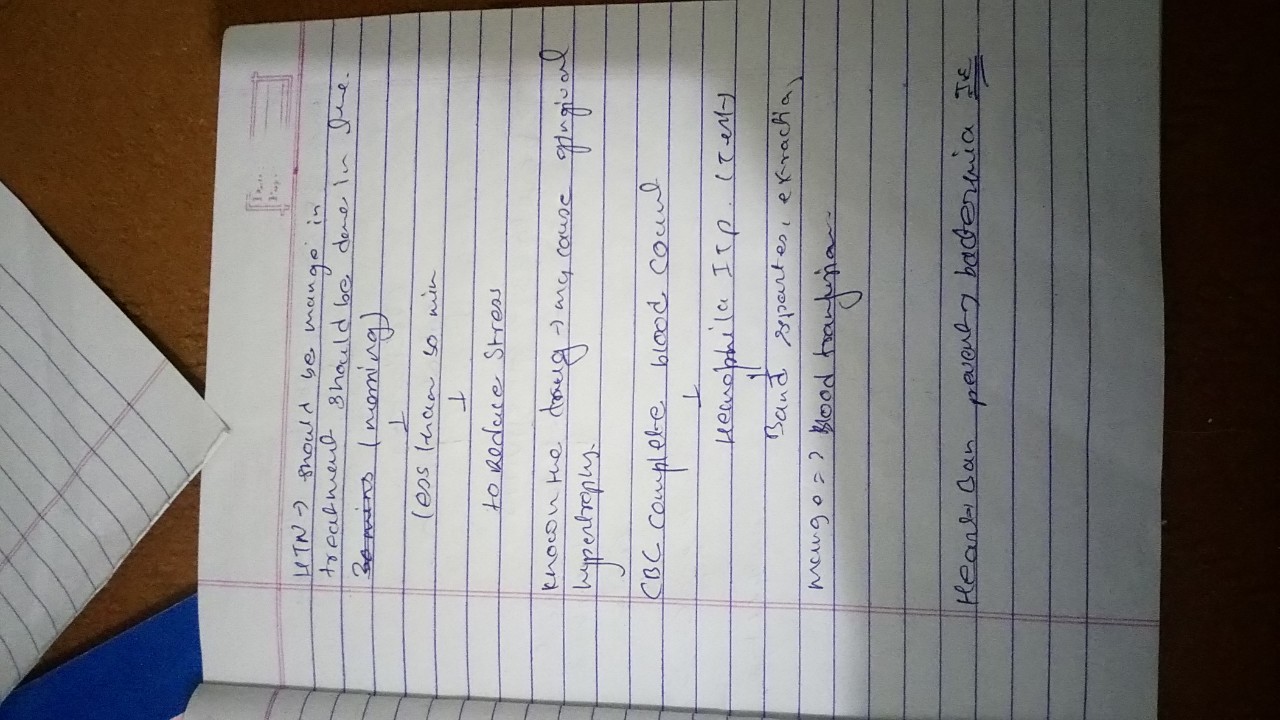 HTN → should be mange in
treatment should be done in the
30 mins (morning)
↓
less than 30 min
↓
to Reduce Stress
Known the drug → may cause gingival
hypertrophy.
CBC complete blood count
↓
Heamophila ITP.
Band extraction
mange => Blood tranfusion
Heart bacteremia IE